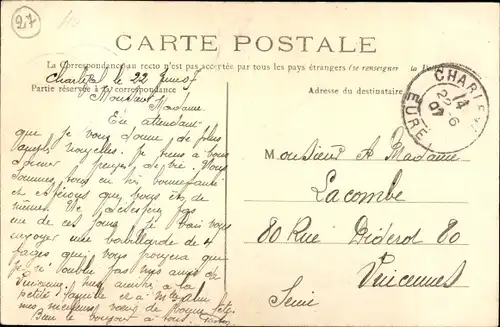 27
CARTE POSTALE
La Correspondance au recto n'est pas acceptée par tous les pays étrangers (se renseigner à la
Charleval le 22 juin 07
Partie réservée à la correspondance
Adresse du destinataire
CHARLEVAL
14
22-6
07
EURE
Monsieur Madame
En attendant
que je vous donne de plus
amples nouvelles. Je tiens à vous
donner
Sommes tous en
et espérons que vous êtes de
même. Ne
un de ces jours je vais vous
envoyer une babillarde de 4
pages qui vous prouvera
que je n'oublie pas mes amis de
Vincennes.
petite famille et à
mes meilleurs vœux de bonne fête
Bien le bonjour à tous.
Monsieur & Madame
Lacombe
80 Rue Diderot 80
Vincennes
Seine